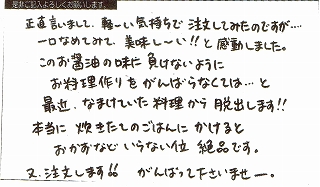 是非ご記入よろしくお願いします。
正直言いまして、軽ーい気持ちで注文してみたのですが‥‥
一口なめてみて、美味しーい!!と感動しました。
このお醤油の味に負けないように
お料理作りをがんばらなくては…と
最近、なまけていた料理から脱出します!!
本当に炊きたてのごはんにかけると
おかずなどいらない位 絶品です。
又、注文します!! がんばって下さいませー。